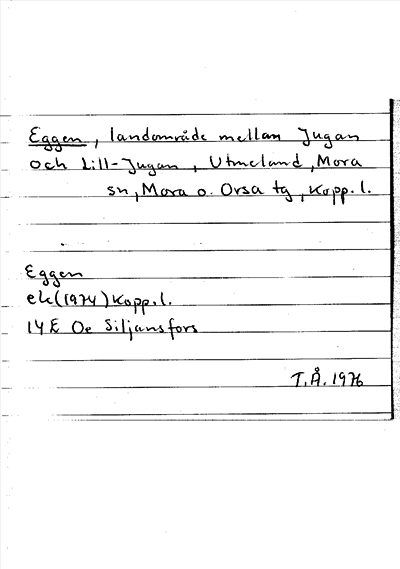 Eggen, landområde mellan Jugan
och Lill-Jugan, Utmeland, Mora
sn, Mora o. Orsa tg, Kopp. l.
Eggen
ek (1974) Kopp. l.
14E Oe Siljansfors
T.Å. 1976